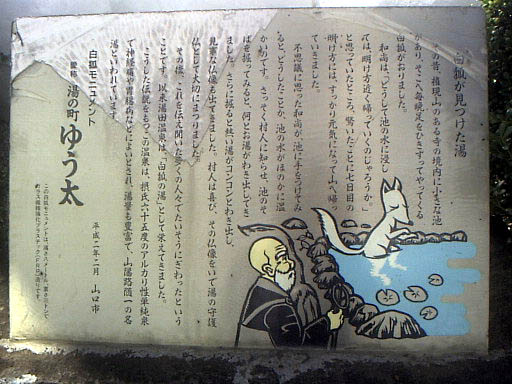 白狐が見つけた湯
昔、権現山のある寺の境内に小さな池
があり、そこへ毎晩足をひきずってやってくる
白狐がおりました。
和尚は「どうして池の水に浸し
ては、明け方近く帰っていくのじゃろうか。」
と思っていたところ、驚いたことに七日目の
明け方には、すっかり元気になって山へ帰っ
ていきました。
不思議に思った和尚が、池に手をつけてみ
ると、どうしたことか、池の水がほのかに温
かいのです。さっそく村人に知らせ、池のそ
ばを掘ってみると、何とお湯がわき出してき
ました。さらに掘ると熱い湯がコンコンとわき出し、
見事な仏像も出てきました。村人は喜び、その仏像をいで湯の守護
仏として大切にまつりました。
その後、これを伝え聞いた多くの人々でたいそうにぎわったという
ことです。以来湯田温泉は、「白狐の湯」として栄えてきました。
こうした伝説をもつこの温泉は、摂氏六十五度のアルカリ性単純泉
で神経痛や胃腸病などによいとされ、湯量も豊富で山陽路随一の名
湯といわれています。
平成二年二月 山口市
白狐モニュメント
愛称 湯の町 ゆう太
この白狐モニュメントは、高さ八メートル、重さ三トンで、
ガラス繊維強化プラスチック(FRP)造りです。